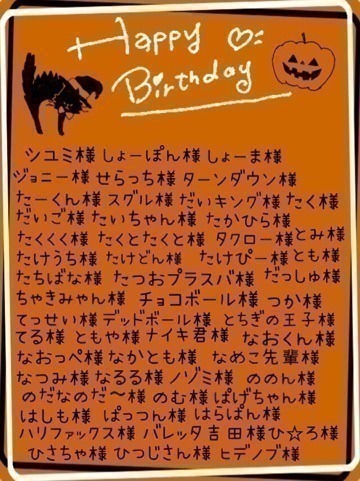 Happy ♡:
Birthday
シユミ様 しょーぽん様 しょーま様
ジョニー様 せらっち様 ターンダウン様
たーくん様 スグル様 だいキング様 たく様
だいご様 たいちゃん様 たかひら様
たくくく様 たくとたくと様 タクロー様 とみ様
たけうち様 たけどん様 たけぴー様 とも様
たちばな様 たつおプラスバ様 だっしゅ様
ちゃきみゃん様 チョコボール様 つか様
てっせい様 デッドボール様 とちぎの王子様
てる様 ともや様 ナイキ君様 なおくん様
なおっぺ様 なかとも様 なめこ先輩様
なつみ様 なるる様 ノゾミ様 ののん様
のだなのだ〜様 のむ様 ぱげちゃん様
はしも様 ぱっつん様 はらぱん様
ハリファックス様 バレッタ吉田様 ひ☆ろ様
ひさちゃ様 ひつじさん様 ヒデノブ様